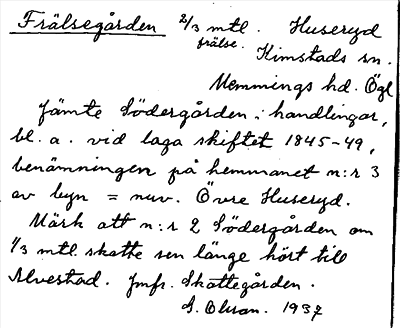 Frälsegården 2/3 mtl. Huseryd
frälse. Kimstads sn.
Memmings hd. Ögl
Jämte Södergården i handlingar,
bl. a. vid laga skiftet 1845-49,
benämningen på hemmanet n:r 3
av byn = nuv. Övre Huseryd.
Märk att n:r 2 Södergården om
1/3 mtl. skatte sen länge hört till
Alvestad. Jmfr. Skattegården.
G. Olsson. 1937